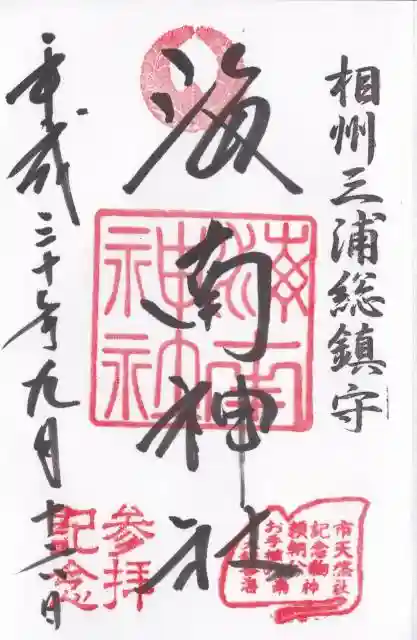 相州三浦総鎮守
海南神社
平成三十年九月十六日
海南神社
参拝
記念
市天然
記念物
頼朝公
お手植